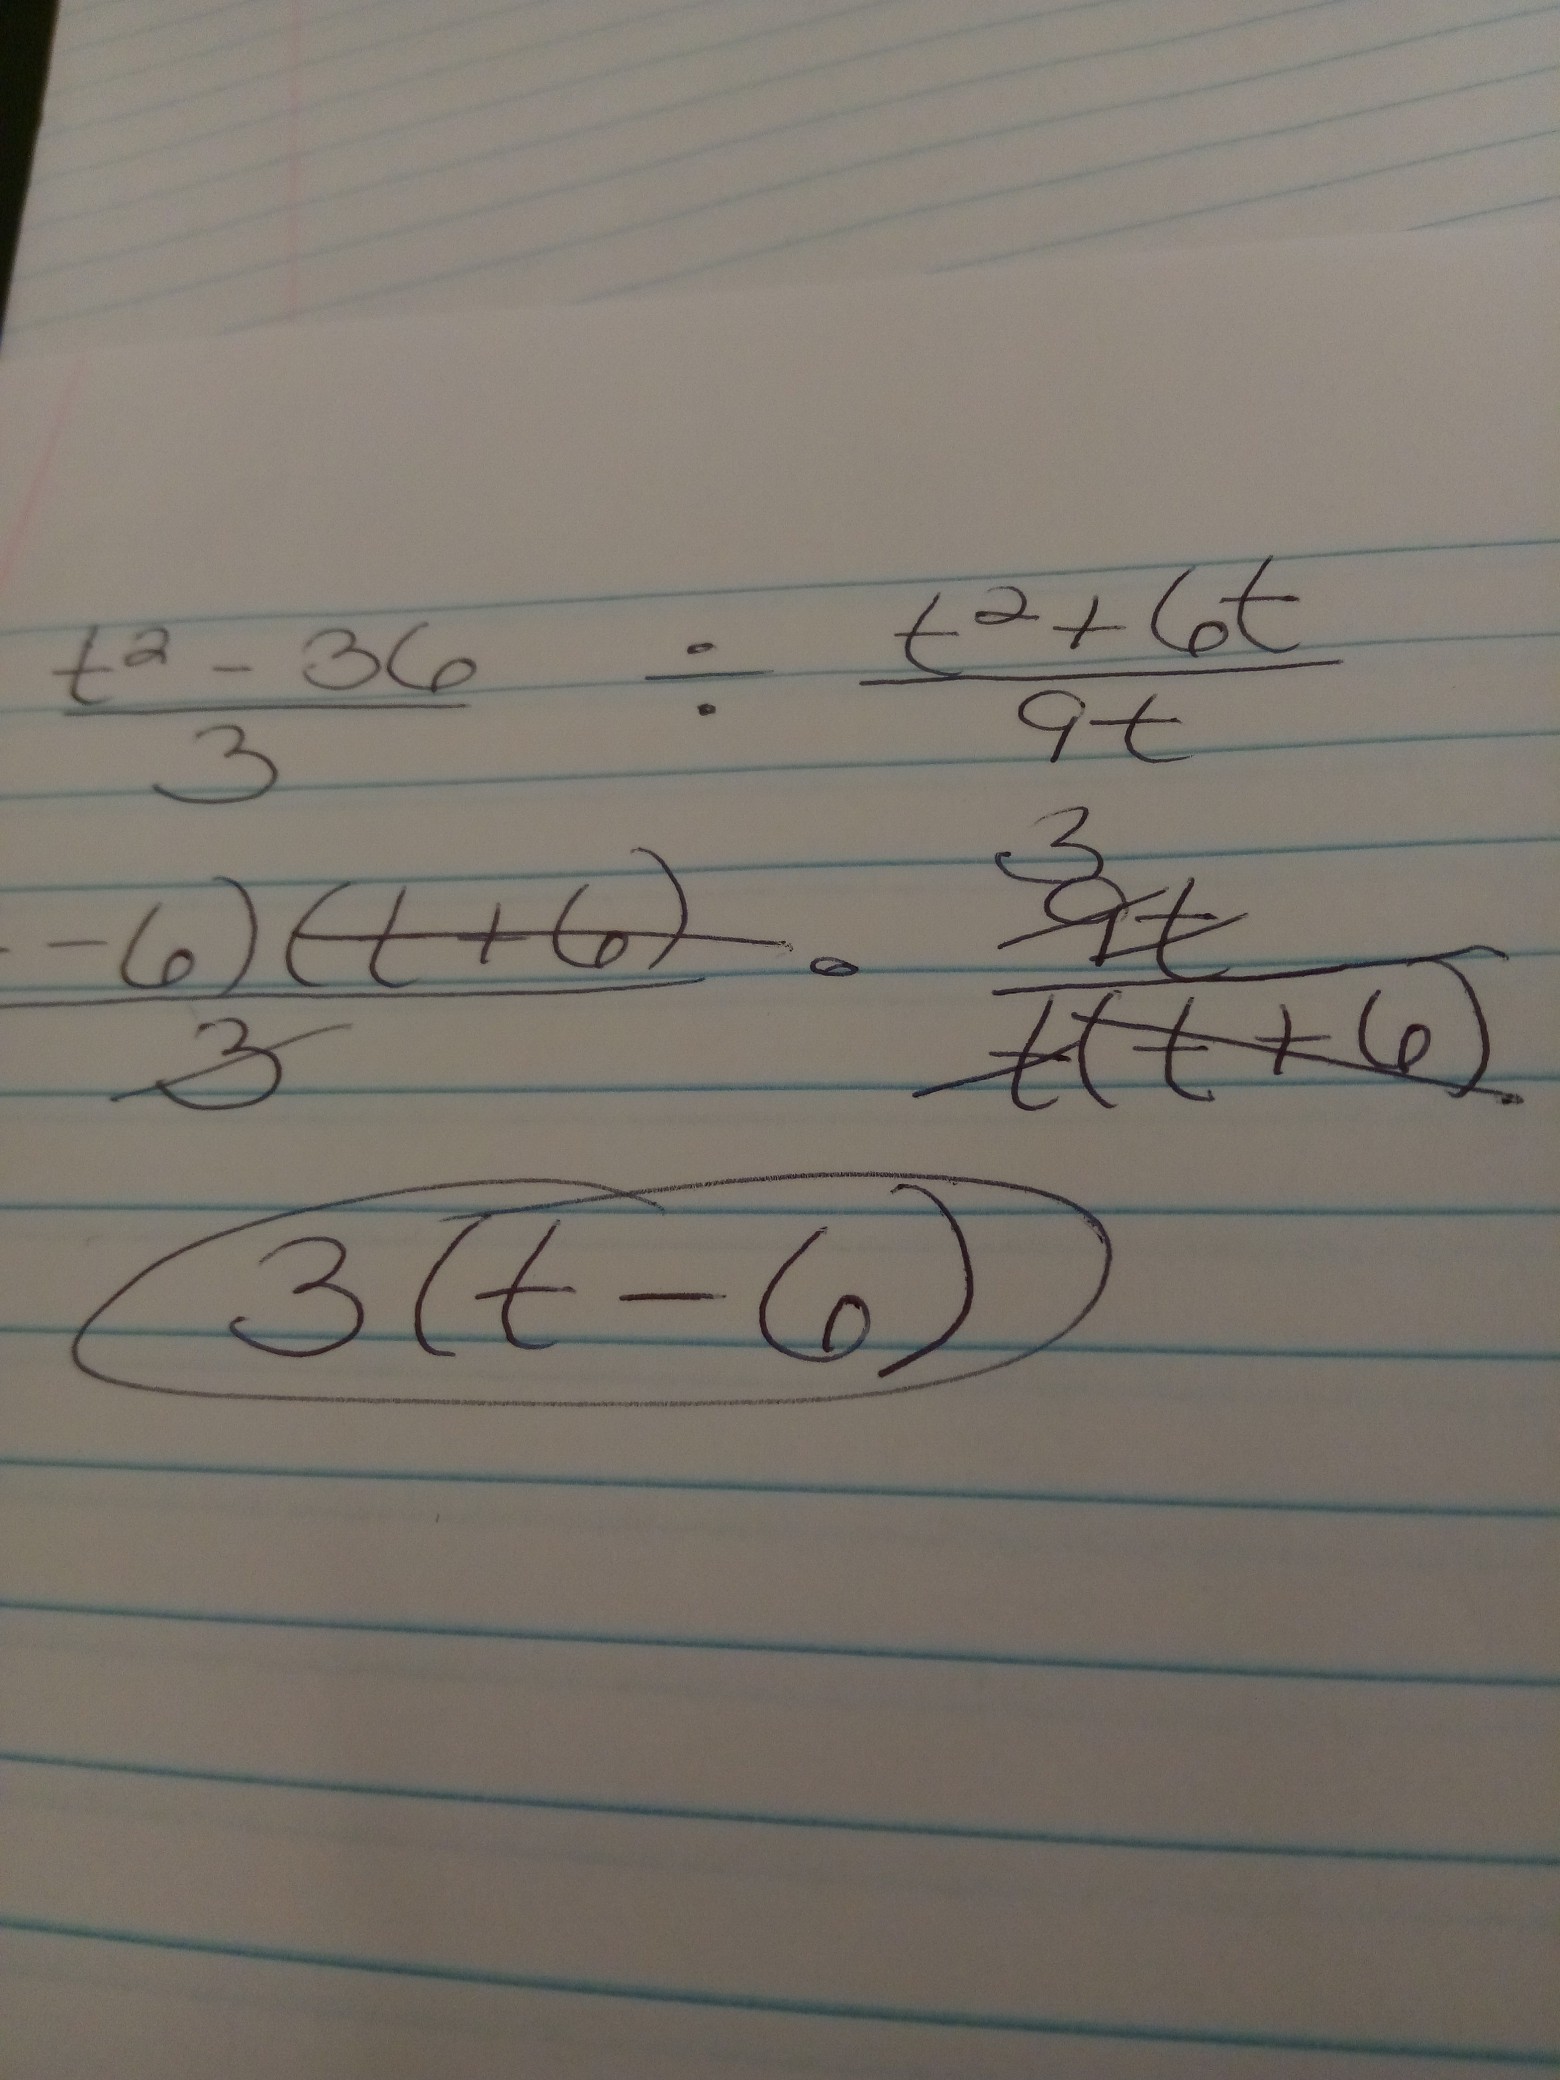 t² - 36 ÷ t² + 6t
3 9t
- 6)(t + 6) · 3 9t
3 t(t + 6)
3(t - 6)